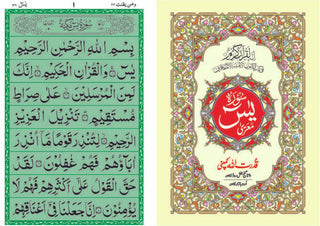 سُوْرَةُ يٰسٓ مَكِّيَّةٌ
بِسْمِ اللّٰهِ الرَّحْمٰنِ الرَّحِيْمِ
يٰسٓ ۚ وَالْقُرْاٰنِ الْحَكِيْمِ ۙ اِنَّكَ
لَمِنَ الْمُرْسَلِيْنَ ۙ عَلٰى صِرَاطٍ
مُّسْتَقِيْمٍ ؕ تَنْزِيْلَ الْعَزِيْزِ
الرَّحِيْمِ ۙ لِتُنْذِرَ قَوْمًا مَّاۤ اُنْذِرَ
اٰبَآؤُهُمْ فَهُمْ غٰفِلُوْنَ ۟ لَقَدْ
حَقَّ الْقَوْلُ عَلٰۤى اَكْثَرِهِمْ فَهُمْ لَا
يُؤْمِنُوْنَ ۟ اِنَّا جَعَلْنَا فِيْۤ اَعْنَاقِهِمْ
سورة
يٰسٓ
معرّٰى
قدرت اللہ کمپنی